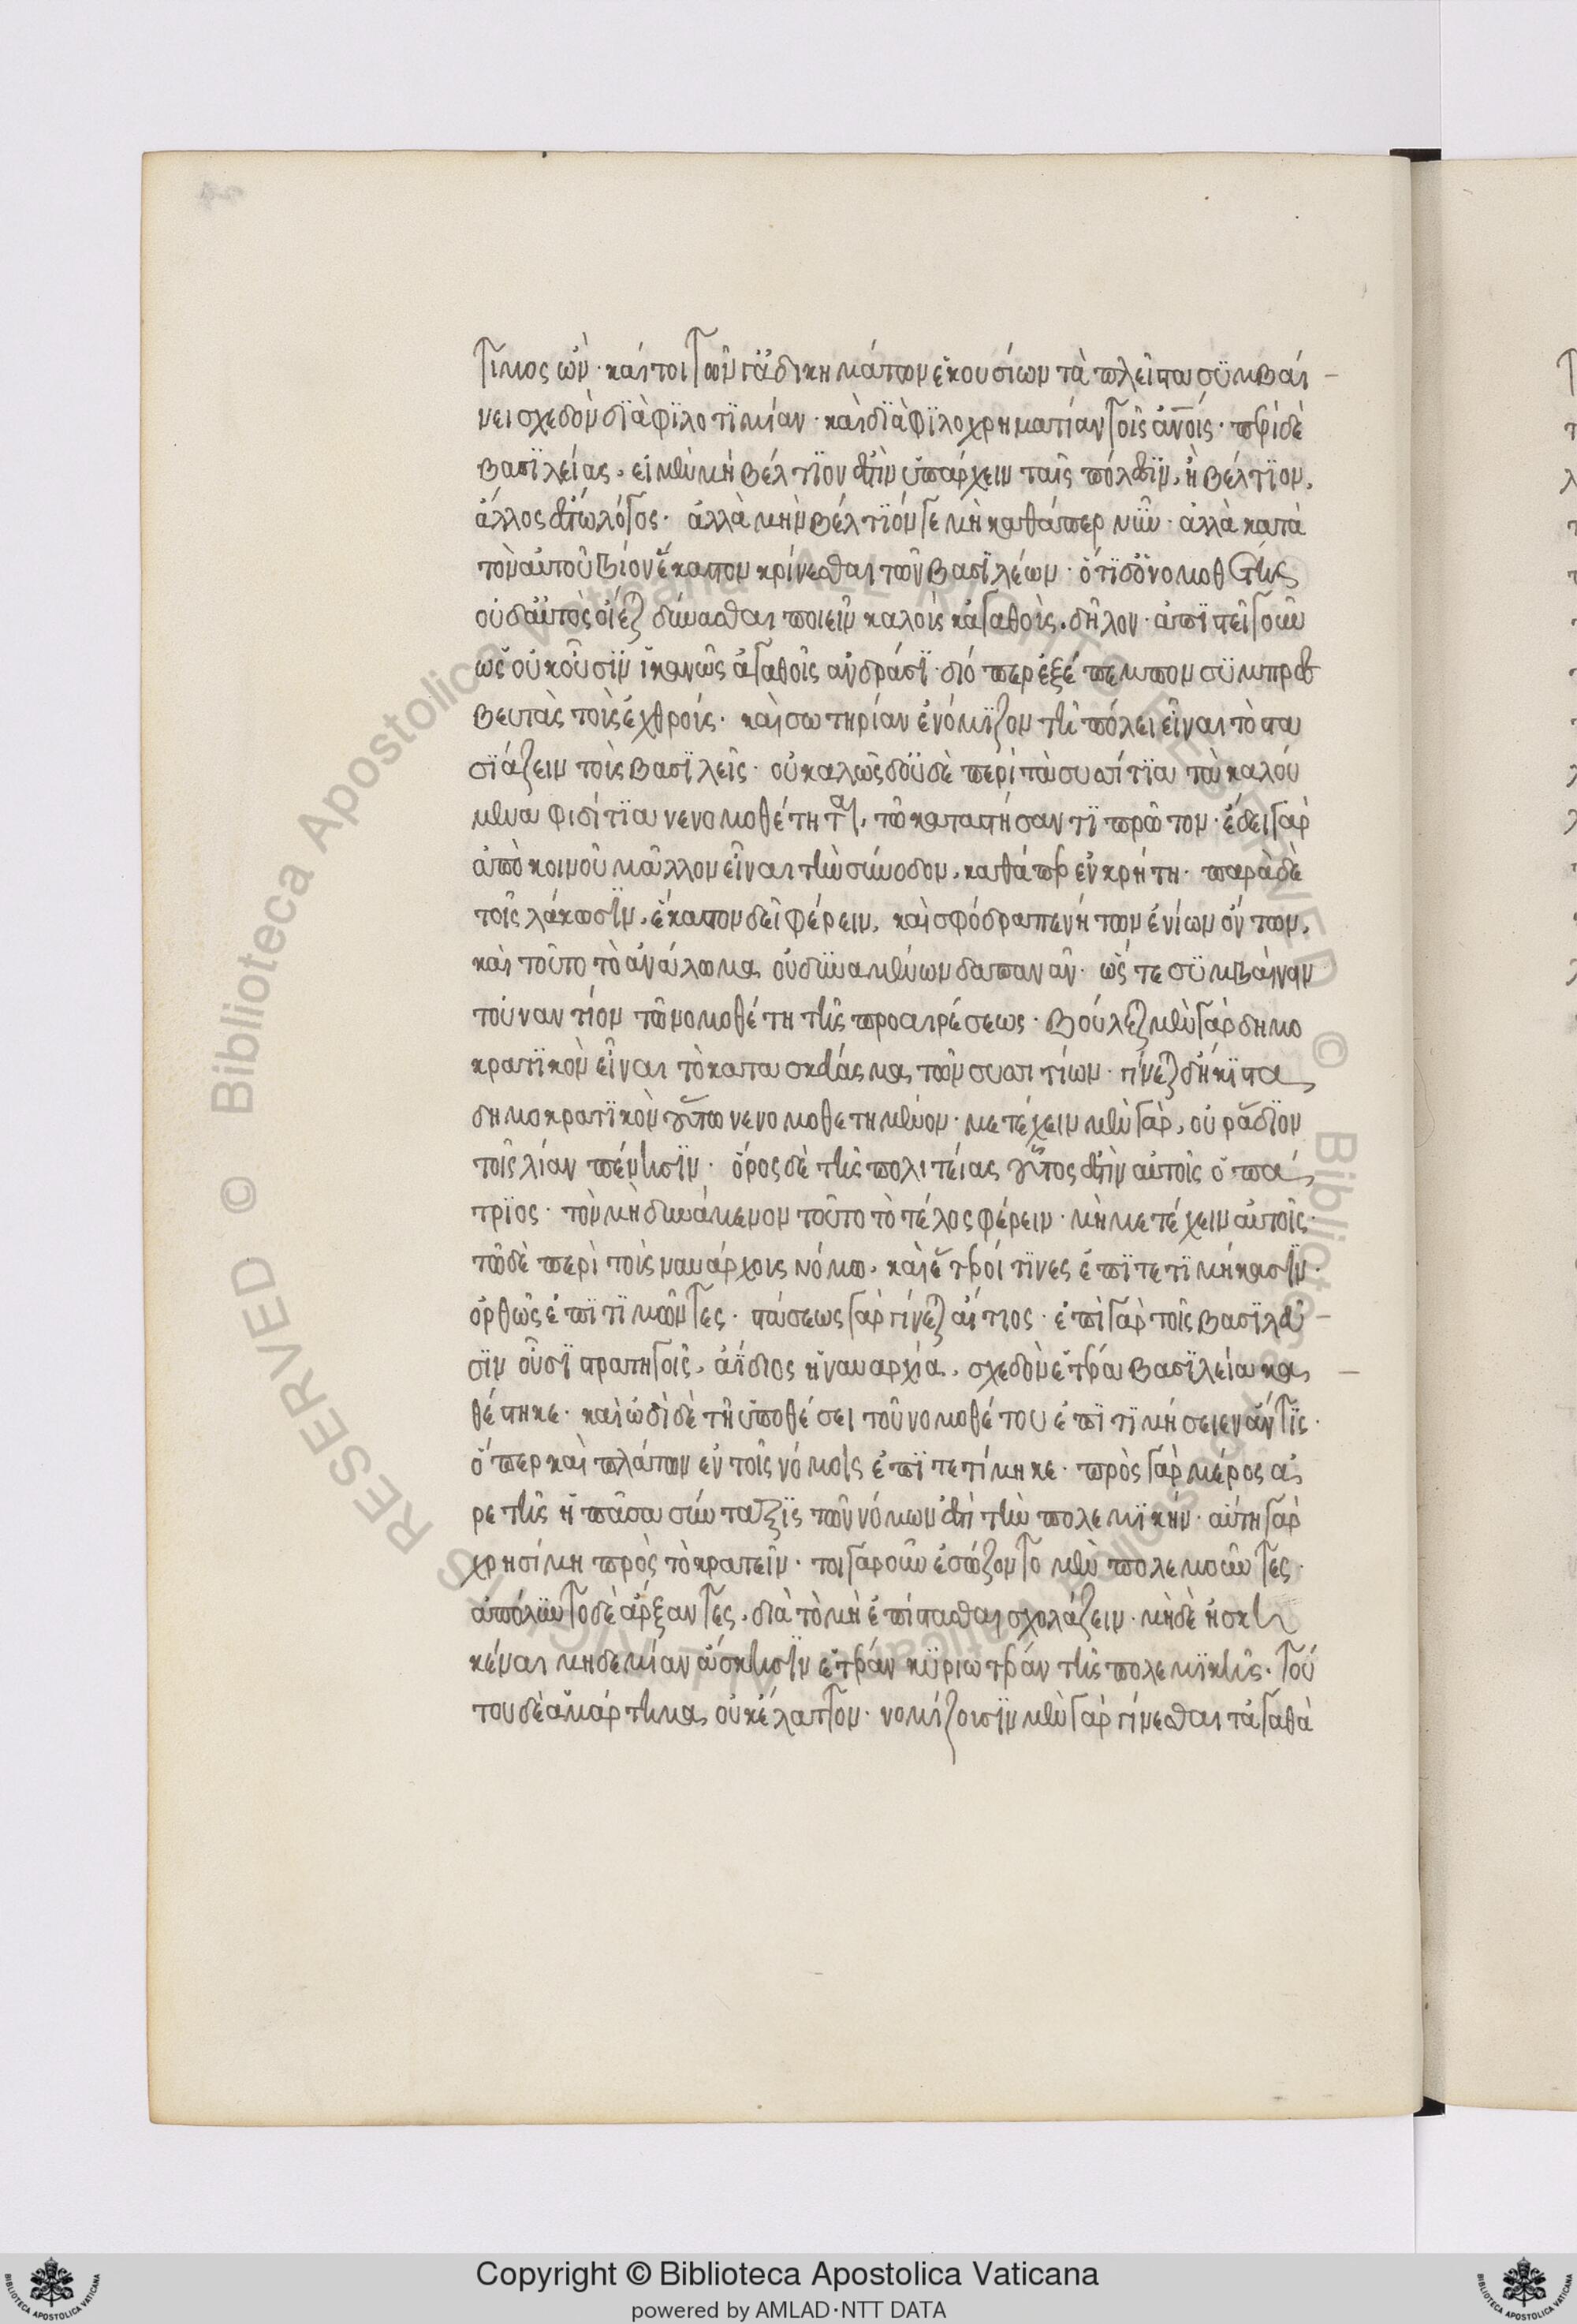 τιμος ὢν· καίτοι τῶν γ ἀδικημάτων ἑκουσίων τὰ πλεῖστα συμβαί
νει σχεδὸν διὰ φιλοτιμίαν· καὶ διὰ φιλοχρηματίαν τοῖς ἀν̅οις· περὶ δὲ
βασιλείας, εἰ μὲν μὴ βέλτιον ἐστὶν ὑπάρχειν ταῖς πόλεσιν, ἢ βέλτιον,
ἄλλος ἔστω λόγος· ἀλλὰ μὴν βέλτιόν γε μὴ καθάπερ νῦν· ἀλλὰ κατὰ
τὸν αὐτοῦ βίον ἕκαστον κρίνεσθαι τῶν βασιλέων· ὅτι δ ὁ νομοθέτης
οὐδ αὐτὸς οἴεται δύνασθαι ποιεῖν καλοὺς κἀγαθοὺς, δῆλον· ἀπιστεῖ γοῦν
ὡς οὐκ οὖσιν ἱκανῶς ἀγαθοῖς ἀνδράσι· διόπερ ἐξέπεμπον συμπρεσ
βευτὰς τοὺς ἐχθρούς· καὶ σωτηρίαν ἐνόμιζον τῇ πόλει εἶναι τὸ στα
σιάζειν τοὺς βασιλεῖς· οὐ καλῶς δ οὐδὲ περὶ τὰ συσσίτια τὰ καλού
μενα φιδίτια νενομοθέτηται, τῷ καταστήσαντι πρῶτον· ἔδει γὰρ
ἀπὸ κοινοῦ μᾶλλον εἶναι τὴν σύνοδον, καθάπερ ἐν κρήτη· παρὰ δὲ
τοῖς λάκωσιν, ἕκαστον δεῖ φέρειν, καὶ σφόδρα πενήτων ἐνίων ὄντων,
καὶ τοῦτο τὸ ἀνάλωμα οὐ δυναμένων δαπανᾶν· ὥστε συμβαίνειν
τοὐναντίον τῷ νομοθέτη τῆς προαιρέσεως· βούλεται μὲν γὰρ δημο
κρατικὸν εἶναι τὸ κατασκεύασμα τῶν συσσιτίων· γίνεται δ ἥκιστα
δημοκρατικὸν οὕτω νενομοθετημένον· μετέχειν μὲν γὰρ, οὐ ῥᾴδιον
τοῖς λίαν πένησιν· ὅρος δὲ τῆς πολιτείας οὗτος ἐστὶν αὐτοῖς ὁ πά
τριος· τὸν μὴ δυνάμενον τοῦτο τὸ τέλος φέρειν· μὴ μετέχειν αὐτοῖς·
τῷ δὲ περὶ τοὺς ναυάρχους νόμω, καὶ ἕτεροί τινες ἐπιτετιμήκασιν·
ὀρθῶς ἐπιτιμῶντες· στάσεως γὰρ γίνεται αἴτιος· ἐπὶ γὰρ τοῖς βασιλεῦ
σιν οὖσι στρατηγοῖς, ἀΐδιος ἡ ναυαρχία, σχεδὸν ἑτέρα βασιλεία κα
θέστηκε· καὶ ὡδὶ δὲ τῇ ὑποθέσει τοῦ νομοθέτου ἐπιτιμήσειεν ἄν τις·
ὅπερ καὶ πλάτων ἐν τοῖς νόμοις ἐπιτετίμηκε· πρὸς γὰρ μέρος ἀ
ρετῆς ἡ πᾶσα σύνταξις τῶν νόμων ἐστὶ τὴν πολεμικήν· αὕτη γὰρ
χρησίμη πρὸς τὸ κρατεῖν· τοιγαροῦν ἐσώζοντο μὲν πολεμοῦντες·
ἀπόλυντο δὲ ἄρξαντες, διὰ τὸ μὴ ἐπίστασθαι σχολάζειν· μὴ δὲ ἠσκη
κέναι μηδεμίαν ἄσκησιν ἑτέραν κυριωτέραν τῆς πολεμικῆς· τού
του δὲ ἁμάρτημα οὐκ ἔλαττον· νομίζουσιν μὲν γὰρ γίνεσθαι τἀγαθὰ
Copyright © Biblioteca Apostolica Vaticana
powered by AMLAD·NTT DATA